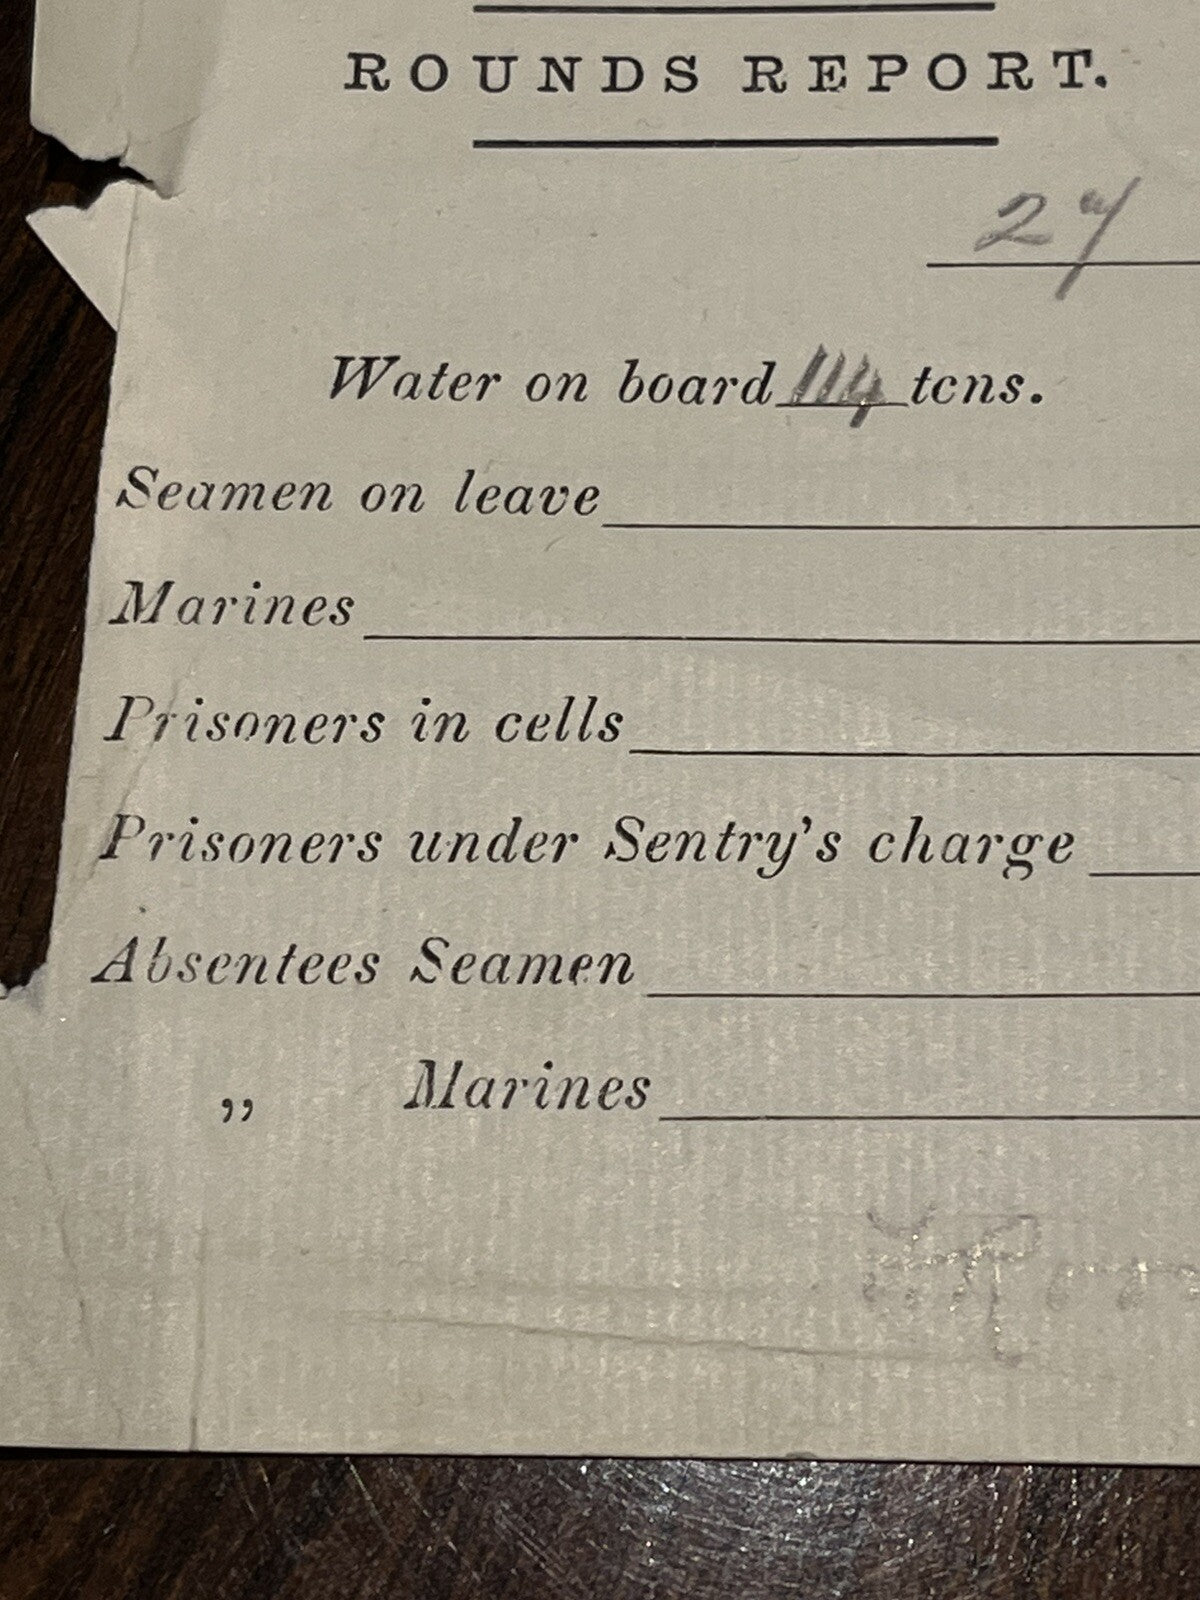 ROUNDS REPORT.
27
Water on board 114 tons.
Seamen on leave
Marines
Prisoners in cells
Prisoners under Sentry's charge
Absentees Seamen
,, Marines